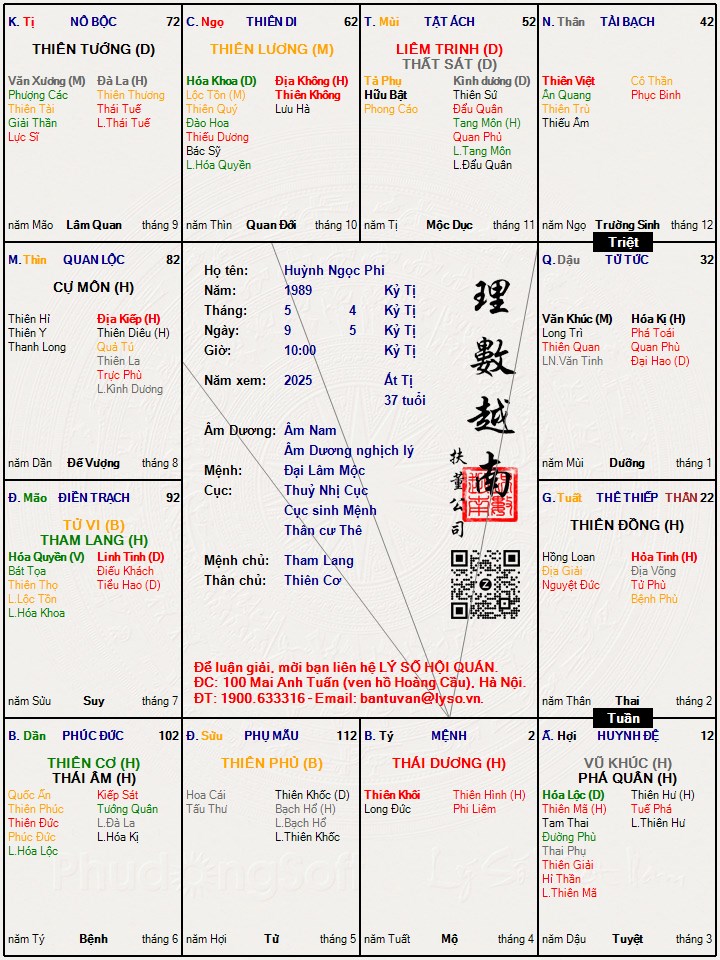 K. Tị NÔ BỘC 72
THIÊN TƯỚNG (D)
Văn Xương (M) Đà La (H)
Phượng Các Thiên Thương
Thiên Tài Thái Tuế
Giải Thần L.Thái Tuế
Lực Sĩ
năm Mão Lâm Quan tháng 9
C. Ngọ THIÊN DI 62
THIÊN LƯƠNG (M)
Hóa Khoa (D) Địa Không (H)
Lộc Tồn (M) Thiên Không
Thiên Quý Lưu Hà
Đào Hoa
Thiếu Dương
Bác Sỹ
L.Hóa Quyền
năm Thìn Quan Đới tháng 10
T. Mùi TẬT ÁCH 52
LIÊM TRINH (D)
THẤT SÁT (D)
Tả Phụ Kình dương (D)
Hữu Bật Thiên Sứ
Phong Cáo Đẩu Quân
Tang Môn (H)
Quan Phủ
L.Tang Môn
L.Đẩu Quân
năm Tị Mộc Dục tháng 11
N. Thân TÀI BẠCH 42
Thiên Việt Cô Thần
Ân Quang Phục Binh
Thiên Trù
Thiếu Âm
năm Ngọ Trường Sinh tháng 12
Triệt
M. Thìn QUAN LỘC 82
CỰ MÔN (H)
Thiên Hỉ Địa Kiếp (H)
Thiên Y Thiên Diêu (H)
Thanh Long Quả Tú
Thiên La
Trực Phù
L.Kình Dương
năm Dần Đế Vượng tháng 8
Họ tên: Huỳnh Ngọc Phi
Năm: 1989 Kỷ Tị
Tháng: 5 4 Kỷ Tị
Ngày: 9 5 Kỷ Tị
Giờ: 10:00 Kỷ Tị
Năm xem: 2025 Ất Tị
37 tuổi
Âm Dương: Âm Nam
Âm Dương nghịch lý
Mệnh: Đại Lâm Mộc
Cục: Thuỷ Nhị Cục
Cục sinh Mệnh
Thân cư Thê
Mệnh chủ: Tham Lang
Thân chủ: Thiên Cơ
理數越南
扶董公司
Z
Để luận giải, mời bạn liên hệ LÝ SỐ HỘI QUÁN.
ĐC: 100 Mai Anh Tuấn (ven hồ Hoàng Cầu), Hà Nội.
ĐT: 1900.633316 - Email: bantuvan@lyso.vn.
Q. Dậu TỬ TỨC 32
Văn Khúc (M) Hóa Kị (H)
Long Trì Phá Toái
Thiên Quan Quan Phù
LN.Văn Tinh Đại Hao (D)
năm Mùi Dưỡng tháng 1
Đ. Mão ĐIỀN TRẠCH 92
TỬ VI (B)
THAM LANG (H)
Hóa Quyền (V) Linh Tinh (D)
Bát Tọa Điếu Khách
Thiên Thọ Tiểu Hao (D)
L.Lộc Tồn
L.Hóa Khoa
năm Sửu Suy tháng 7
G. Tuất THÊ THIẾP THÂN 22
THIÊN ĐỒNG (H)
Hồng Loan Hỏa Tinh (H)
Địa Giải Địa Võng
Nguyệt Đức Tử Phù
Bệnh Phù
năm Thân Thai tháng 2
Tuần
B. Dần PHÚC ĐỨC 102
THIÊN CƠ (H)
THÁI ÂM (H)
Quốc Ấn Kiếp Sát
Thiên Phúc Tướng Quân
Thiên Đức L.Đà La
Phúc Đức L.Hóa Kị
L.Hóa Lộc
năm Tý Bệnh tháng 6
Đ. Sửu PHỤ MẪU 112
THIÊN PHỦ (B)
Hoa Cái Thiên Khốc (D)
Tấu Thư Bạch Hổ (H)
L.Bạch Hổ
L.Thiên Khốc
năm Hợi Tử tháng 5
B. Tý MỆNH 2
THÁI DƯƠNG (H)
Thiên Khôi Thiên Hình (H)
Long Đức Phi Liêm
năm Tuất Mộ tháng 4
Ấ. Hợi HUYNH ĐỆ 12
VŨ KHÚC (H)
PHÁ QUÂN (H)
Hóa Lộc (D) Thiên Hư (H)
Thiên Mã (H) Tuế Phá
Tam Thai L.Thiên Hư
Đường Phù
Thai Phụ
Thiên Giải
Hỉ Thần
L.Thiên Mã
năm Dậu Tuyệt tháng 3